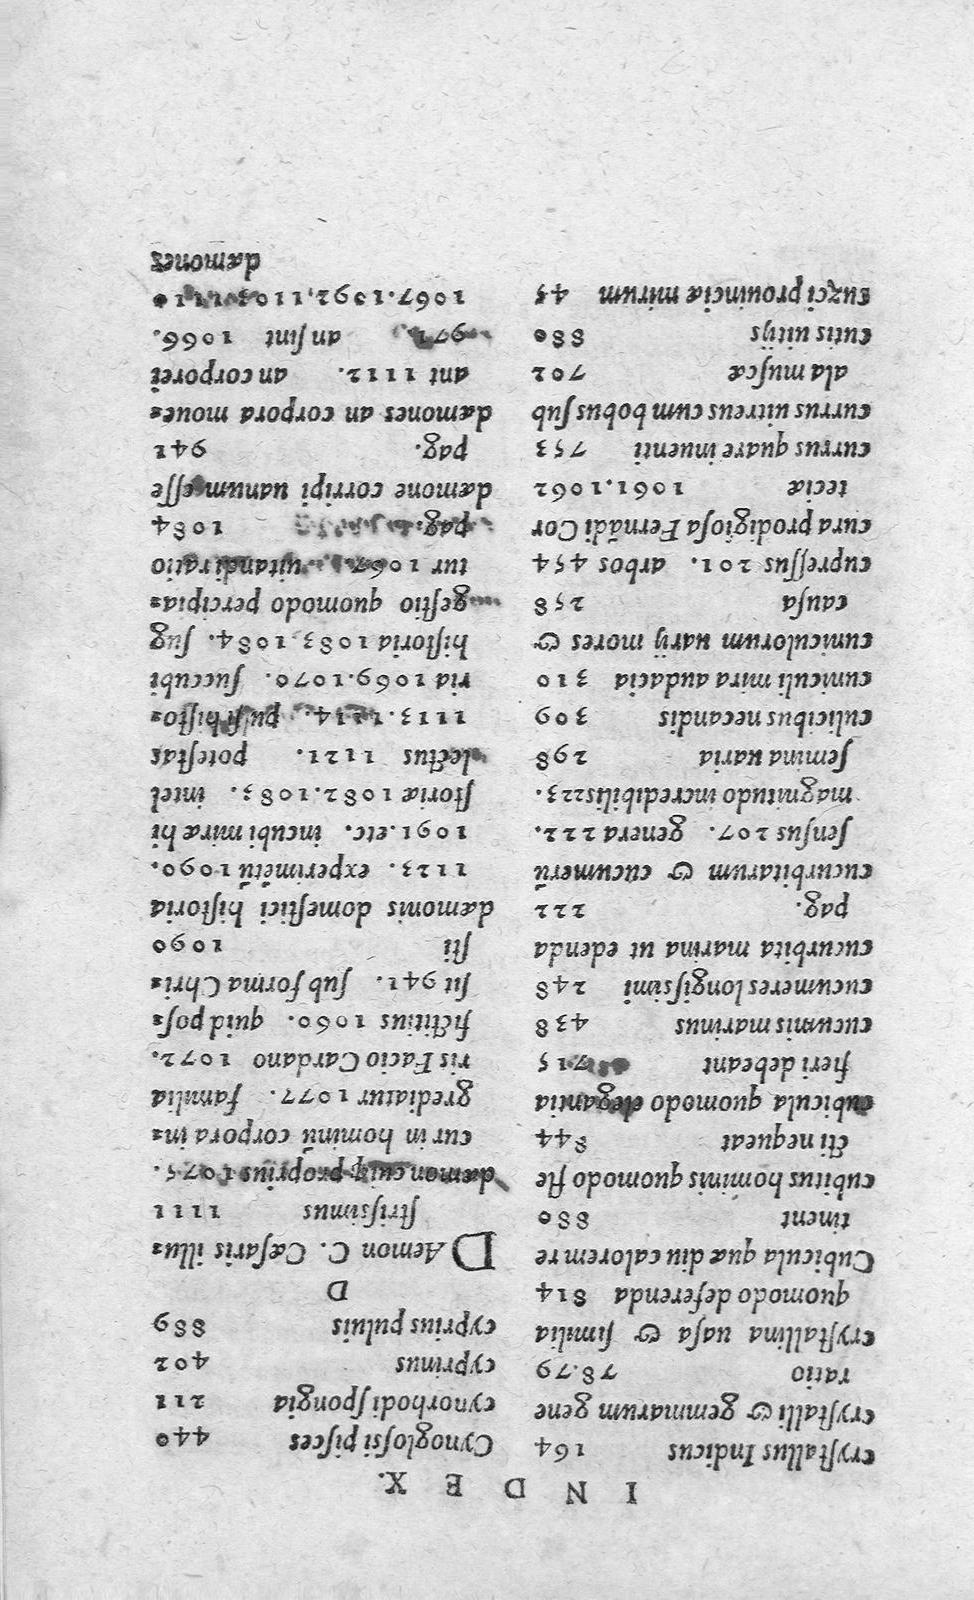 INDEX.
cryſtallus Indicus 164
cryſtalli & gemmarum gene
ratio 78.79
cryſtallina uaſa & ſimilia
quomodo deferenda 814
Cubicula quæ diu calorem re
tinent 880
cubitus hominis quomodo fle
cti nequeat 844
cubicula quomodo elegantia
fieri debeant 715
cucumis marinus 438
cucumeres longiſsimi 248
cucurbita marina ut edenda
pag. 222
cucurbitarum & cucumerū
ſenſus 207. genera 222.
magnitudo incredibilis 223.
ſemina uaria 298
culicibus necandis 309
cuniculi mira audacia 310
cuniculorum uarij mores &
cauſa 258
cupreſſus 201. arbos 454
cura prodigioſa Fernādi Cor
teciæ 1061.1062
currus quare inuenti 753
currus uitreus cum bobus ſub
ala muſcæ 702
cutis uitijs 880
cuzci prouinciæ mirum 45
Cynogloſsi piſces 440
cynorhodi ſpongia 211
cyprinus 402
cyprius puluis 889
D
DAemon C. Cæſaris illus
ſtriſsimus 1111
dæmon cuiq; proprius 1075.
cur in hominū corpora in
grediatur 1077. familia
ris Facio Cardano 1072.
fictitius 1060. quid poſ
ſit 941. ſub forma Chri
ſti 1090
dæmonis domeſtici hiſtoria
1123. experimētū 1090.
1091.etc. incubi miræ hi
ſtoriæ 1082.1083. intel
lectus 1121. poteſtas
1113.1114. puſilli hiſto
ria 1069.1070. ſuccubi
hiſtoria 1083.1084. ſug
geſtio quomodo percipia
tur 1067. uitandi ratio
pag. 1084
dæmone corripi uanum eſſe
pag. 941
dæmones an corpora moue
ant 1112. an corporei
971. an ſint 1066.
1067.1092.1103.1110
dæmones